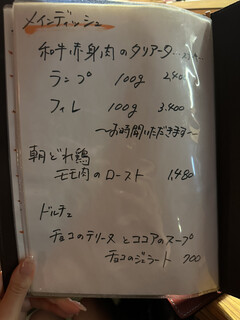 メインディッシュ
和牛赤身肉のタリアータ
ランプ 100g 2,400
フィレ 100g 3,400
〜お時間いただきます〜
朝どれ鶏
モモ肉のロースト 1,480
ドルチェ
チョコのテリーヌとココアのスープ
チョコのジェラート 700